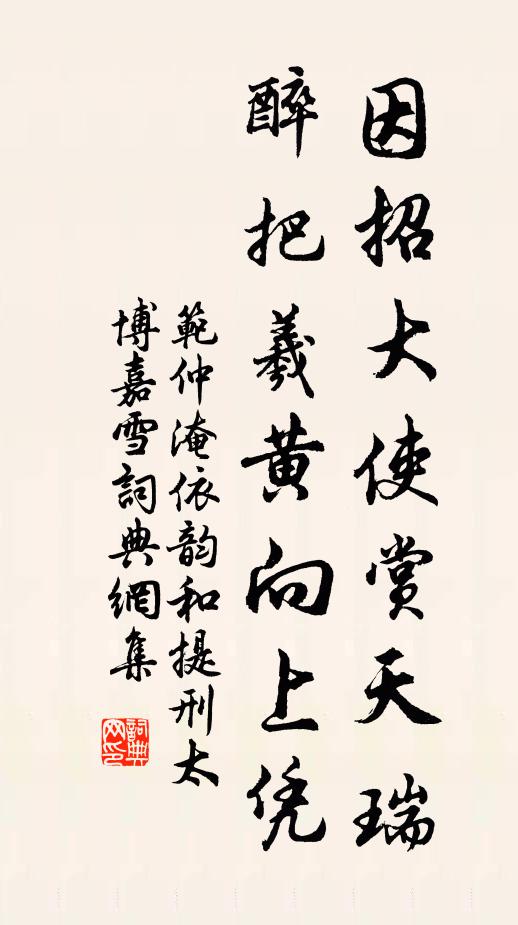 因招大使赏天瑞
醉把羲黄向上凭
範仲淹依韵和提刑太
博嘉雪詞典網集
詞典网印